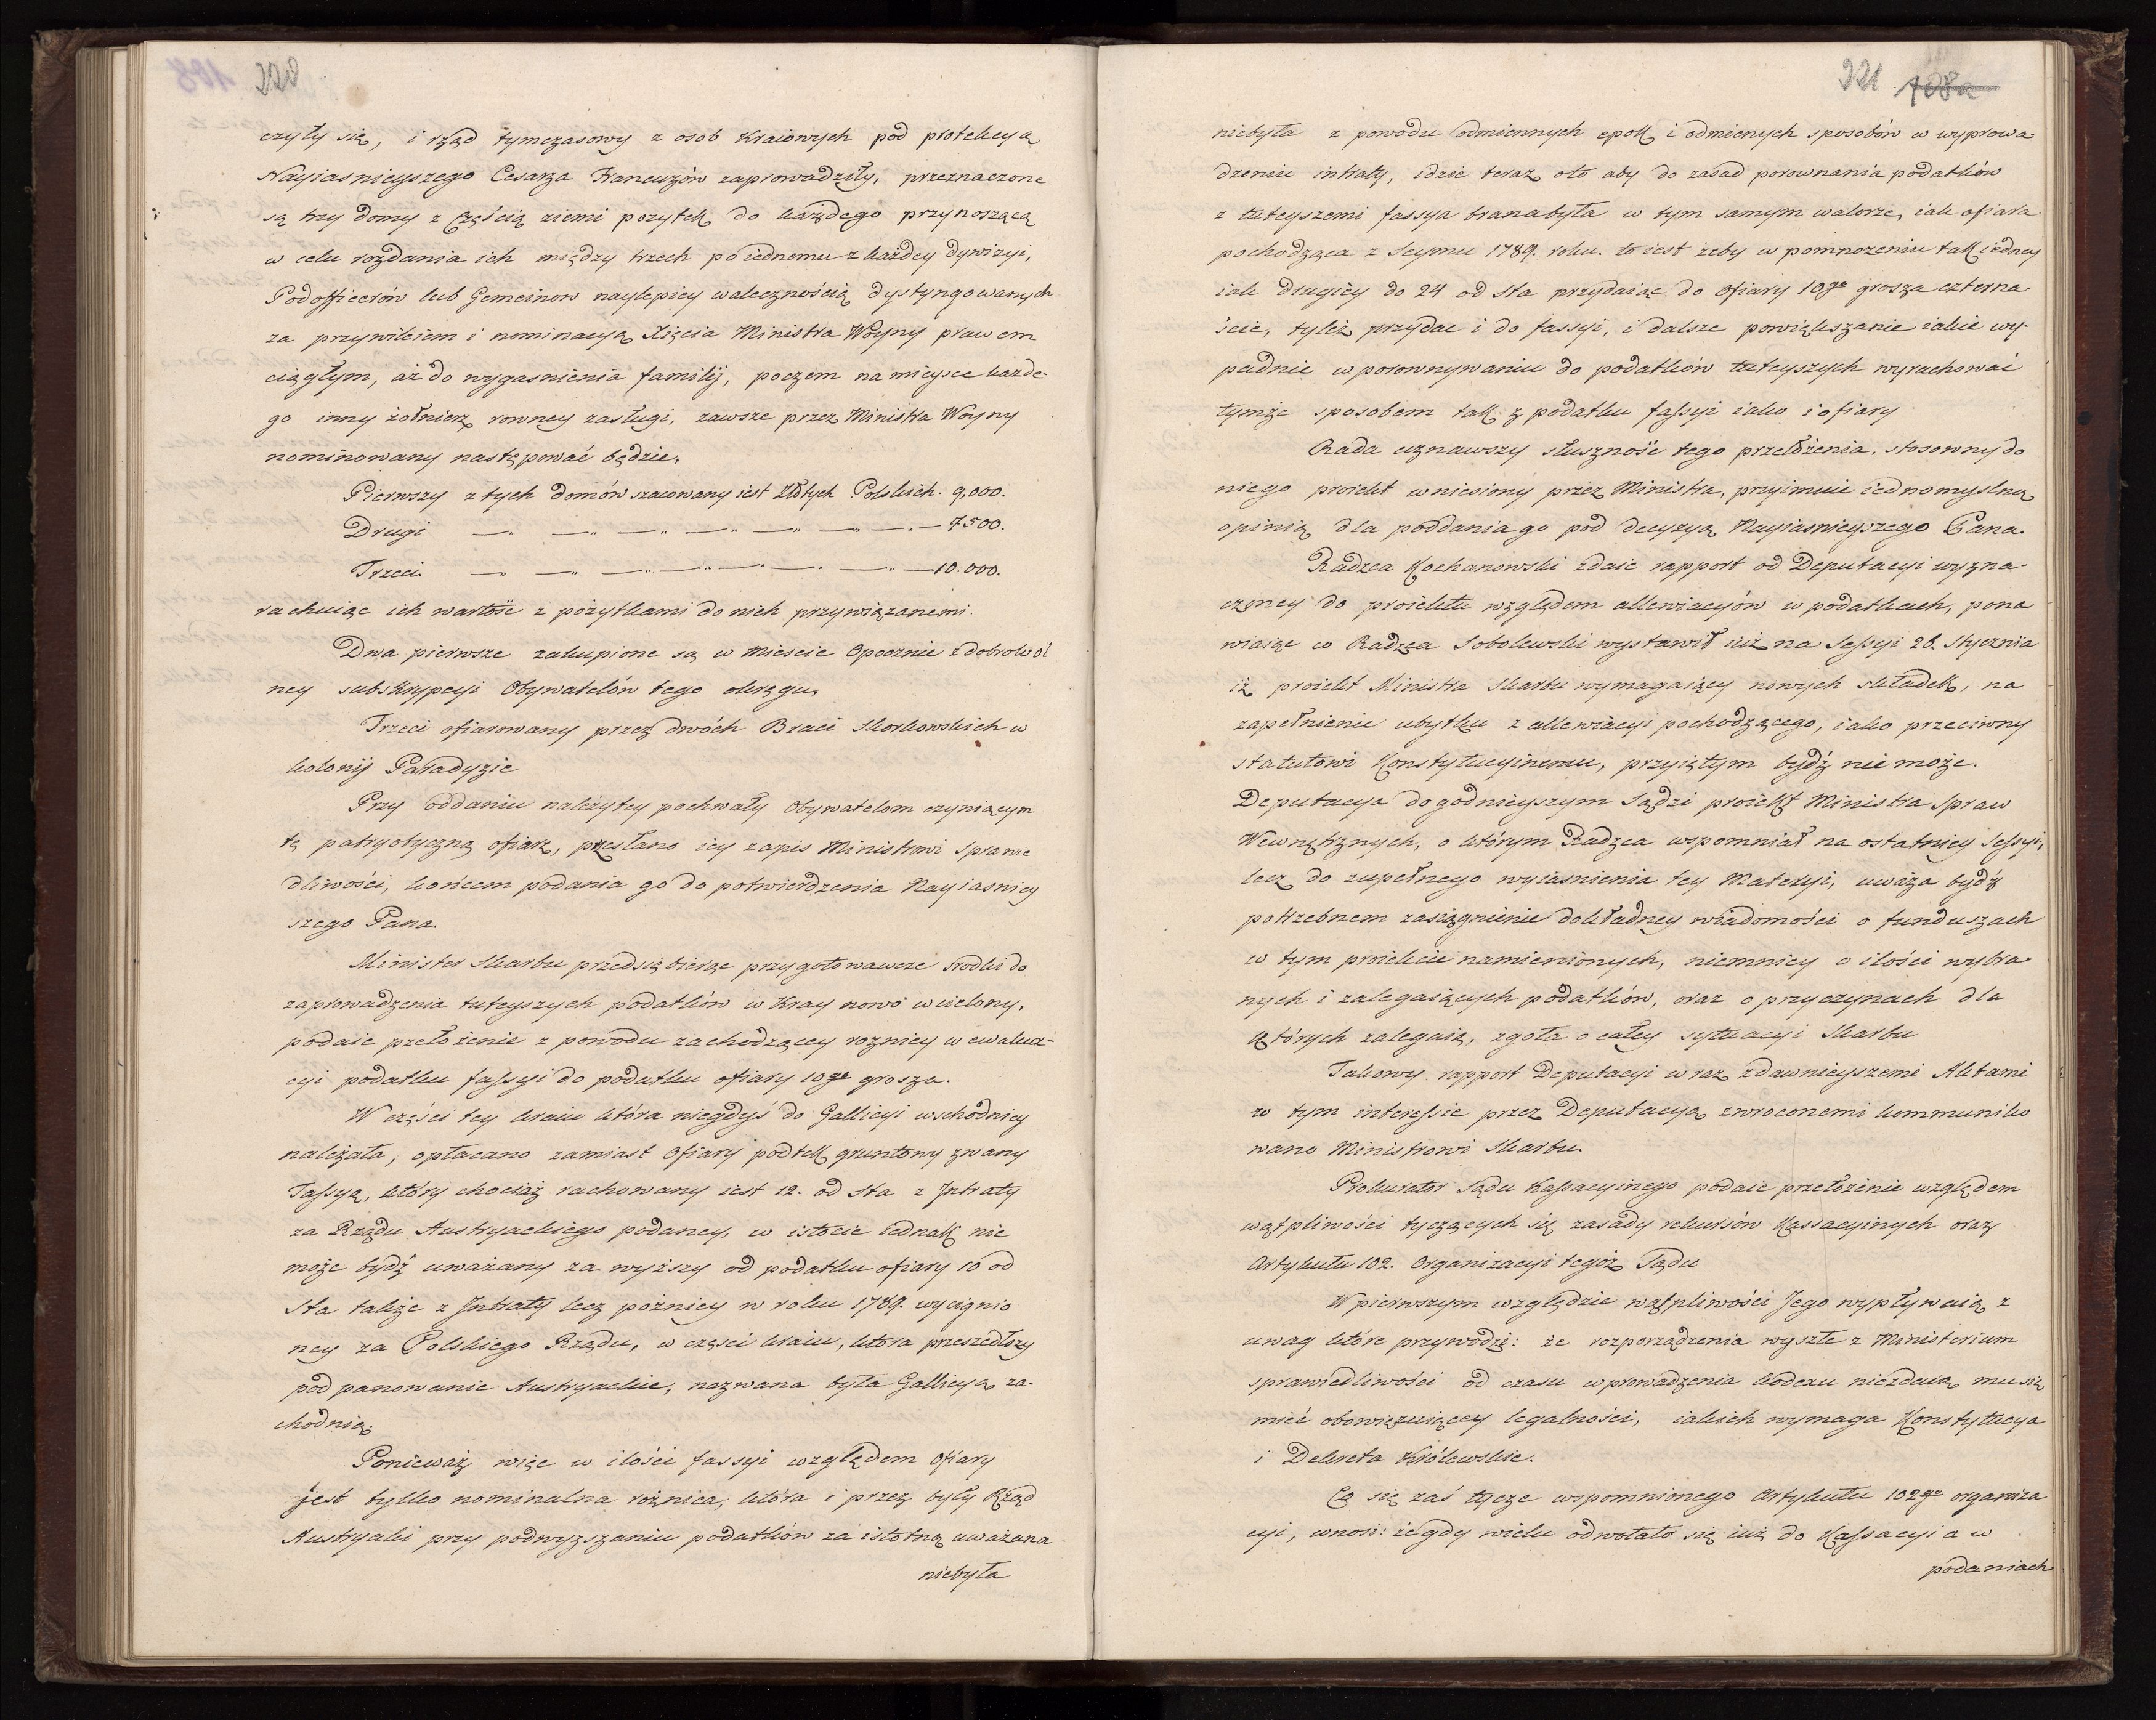 220
czyły się, i rząd tymczasowy z osob Kraiowych pod protekcyą
Nayiasnieyszego Cesarza Francuzów zaprowadziły, przeznaczone
są trzy domy z częścią ziemi pozytek do każdego przynoszącą
w celu rozdania ich między trzech po iednemu z każdey dywizyi,
Podofficerów lub Gemeinow naylepiey walecznością dystyngowanych
za przywileiem i nominacyą Xięcia Ministra Woyny prawem
ciągłym, aż do wygasnienia familij, poczem na mieysce każde-
go inny żołnierz rowney zasługi, zawsze przez Ministra Woyny
nominowany następować będzie.
Pierwszy z tych domów szacowany iest Złotych Polskich. 9,000.
Drugi — „ — „ — „ — „ — „ — „ — 7500.
Trzeci — „ — „ — „ — „ — „ — „ — 10.000.
rachuiąc ich wartość z pożytkami do nich przywiązanemi.
Dwa pierwsze zakupione są w Miescie Opocznie z dobrowol
ney subskrypcyi Obywatelów tego okręgu,
Trzeci ofiarowany przez dwóch Braci Skorkowskich w
kolonij Paradyzie
Przy oddaniu należytey pochwały Obywatelom czyniącym
tę patryotyczną ofiarę, przesłano iey zapis Ministrowi Sprawie
dliwości, końcem podania go do potwierdzenia Nayiasniey
szego Pana.
Minister Skarbu przedsiębierąc przygotowawcze srodki do
zaprowadzenia tuteyszych podatków w Kray nowo wcielony,
podaie przełożenie z powodu zachodzącey rożnicy w ewalua-
cyi podatku fassyi do podatku ofiary 10go grosza.
W części tey kraiu która niegdyś do Gallicyi wschodniey
należała, opłacano zamiast Ofiary podtek gruntowy zwany
Fassyą, który chociaż rachowany iest 12. od sta z Jntraty
za Rządu Austryackiego podaney, w istocie iednak nie
może bydź uważany za wyższy od podatku ofiary 10 od
sta także z Jntraty lecz pożniey w roku 1789. wyciągnio
ney za Polskiego Rządu, w części kraiu, ktora przeszedłszy
pod panowanie Austryackie, nazwana była Gallicyą za-
chodnią.
Ponieważ więc w ilości fassyi względem Ofiary
jest tylko nominalna rożnica, która i przez były Rząd
Austryacki przy podwyzszaniu podatków za istotną uważana
niebyła
221 108a
niebyła z powodu odmiennych epok i odmienych sposobów w wyprowa
dzeniu intraty, idzie teraz oto aby do zasad porownania podatków
z tuteyszemi fassya brana była w tym samym walorze, iak ofiara
pochodząca z Seymu 1789. roku. to iest żeby w pomnożeniu tak iedney
iak drugiey do 24 od sta przydaiąc do Ofiary 10go grosza czterna
ście, tyleż przydac i do fassyi, i dalsze powiększanie iakie wy-
padnie w porownywaniu do podatków tuteyszych wyrachować
tymże sposobem tak z podatku fassyi iako i ofiary
Rada uznawszy słuszność tego przełożenia, stosowny do
niego proiekt wniesiony przez Ministra, przyimuie iednomyslną
opinią dla poddania go pod decyzyą Nayiasnieyszego Pana.
Radzca Kochanowski zdaie rapport od Deputacyi wyzna-
czoney do proiektu względem allewiacyów w podatkach, pona
wiaiąc co Radzca Sobolewski wystawił iuż na Sessyi 26. stycznia
iż proiekt Ministra Skarbu wymagaiący nowych składek, na
zapełnienie ubytku z allewiacyi pochodzącego, iako przeciwny
statutowi Konstytucyinemu, przyiętym bydź nie może.
Deputacya dogodnieyszym sądzi proiekt Ministra Spraw
Wewnętrznych, o którym Radzca wspomniał na ostatniey Sessyi,
lecz do zupełnego wyiasnienia tey Materyi, uważa bydź
potrzebnem zasiągnienie dokładney wiadomości o funduszach
w tym proiekcie namienionych, niemniey o ilości wybra
nych i zalegaiących podatków, oraz o przyczynach dla
których zalegaią, zgoła o całey sytuacyi Skarbu
Takowy rapport Deputacyi wraz z dawnieyszemi Aktami
w tym interessie przez Deputacyą zwroconemi kommuniko
wano Ministrowi Skarbu.
Prokurator Sądu Kassacyinego podaie przełożenie względem
wątpliwości tyczących się zasady rekursów Kassacyinych oraz
Artykułu 102. Organizacyi tegoż Sądu
W pierwszym względzie wątpliwości Jego wypływaią z
uwag które przywodzi: że rozporządzenia wyszłe z Ministerium
sprawiedliwości od czasu wprowadzenia kodexu niezdaią mu się
mieć obowiązuiącey legalności, iakich wymaga Konstytucya
i Dekreta Królewskie.
Co się zaś tycze wspomnionego Artykułu 102go organiza
cyi, wnosi: że gdy wielu odwołało się iuż do Kassacyi a w
podaniach